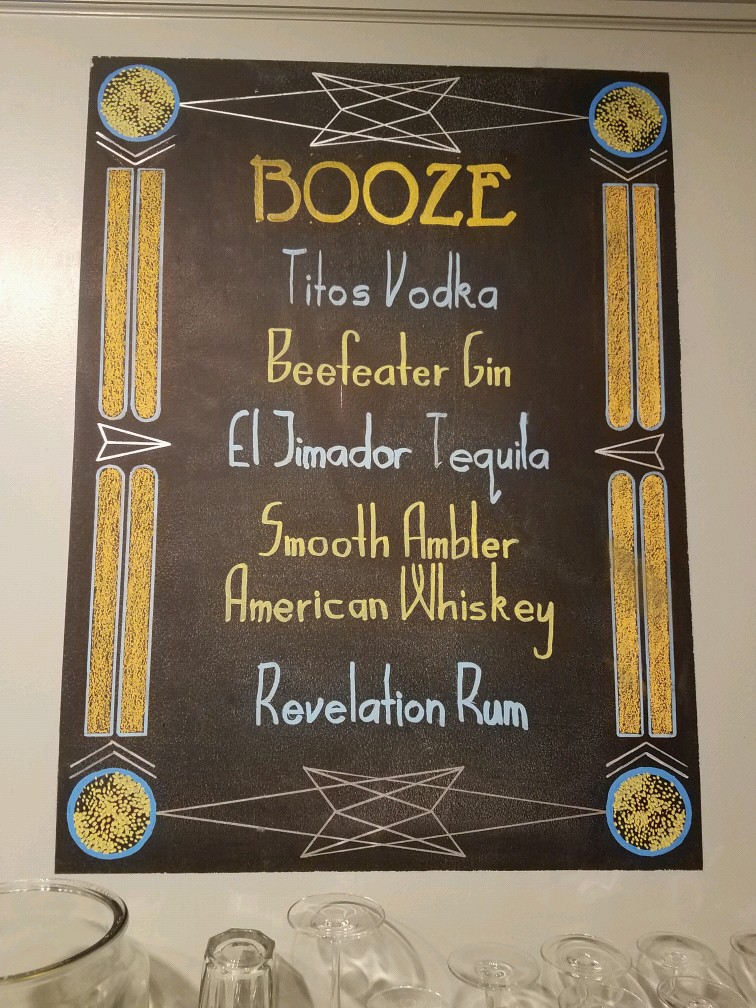 BOOZE
Titos Vodka
Beefeater Gin
El Jimador Tequila
Smooth Ambler
American Whiskey
Revelation Rum